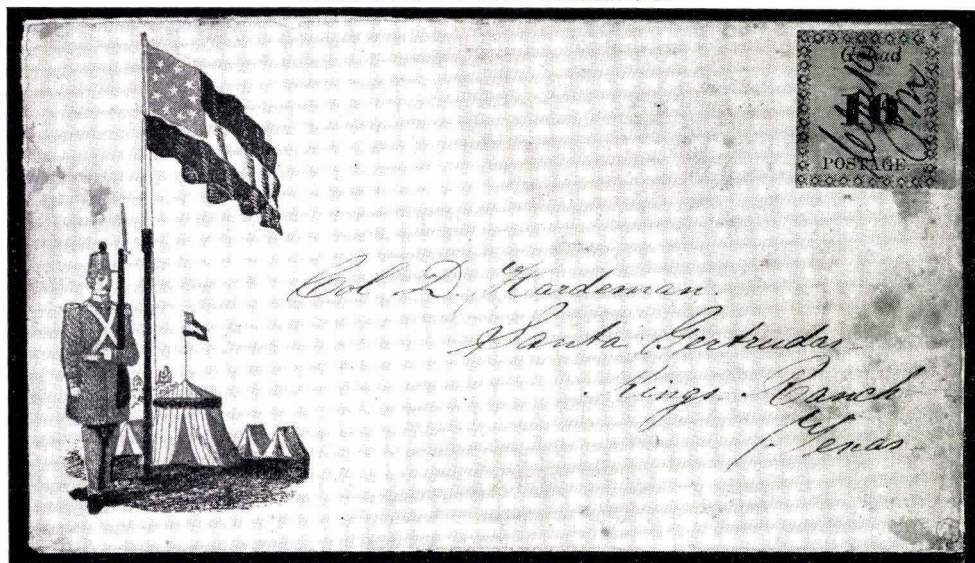 Goliad
10
POSTAGE.
J M
Col D. Hardeman
Santa Gertrudas
Kings Ranch
Texas